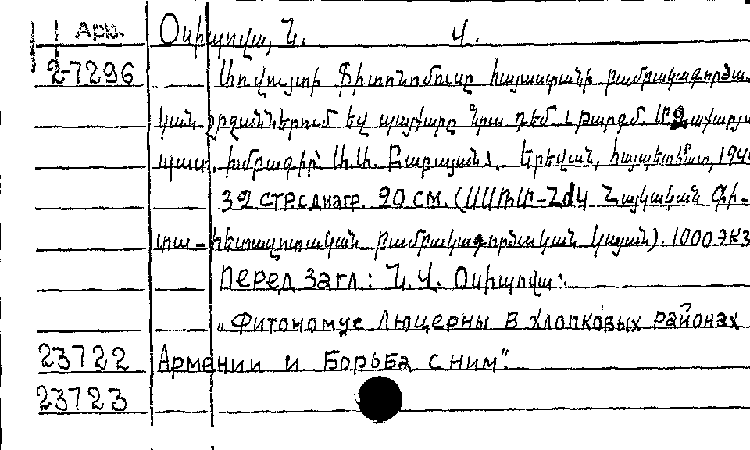 Арм. Օսիպովա, Ն. Վ.
2-7296 Առվույտի ֆիտոնոմուսը հայաստանի բամբակագործա
կան շրջաններում եվ պայքարը նրա դեմ. թարգմ.
պատ. խմբագիր՝ Ա.Ա. Երեվան, հայպետհրատ, 194
32 стр с диагр. 20 см. (ՍՍՌՄ-ՀԺԿ Հայկական գի-
տա-հետազոտական բամբակագործական կայան). 1000 экз
Перед загл: Ն. Վ. Օսիպովա:
„Фитономус люцерны в хлопковых районах
23722 Армении и борьба с ним".
23723